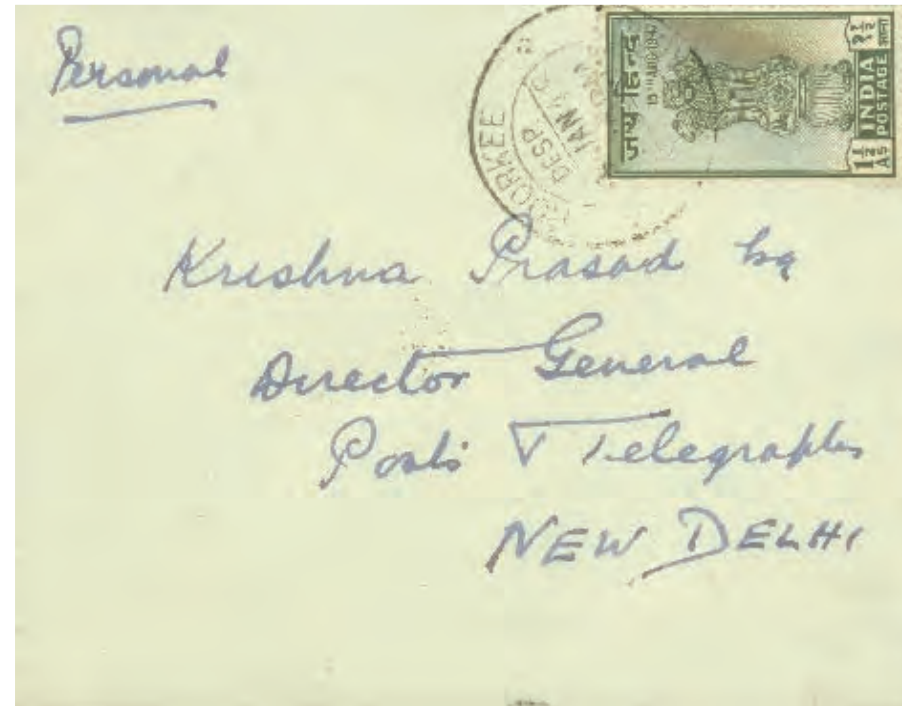 Personal
ROORKEE
DESP
JAN 4
जय हिन्द
15TH AUG 1947
1½ AS
INDIA POSTAGE
१½ आना
Krishna Prasad Esq
Director General
Posts & Telegraphs
NEW DELHI